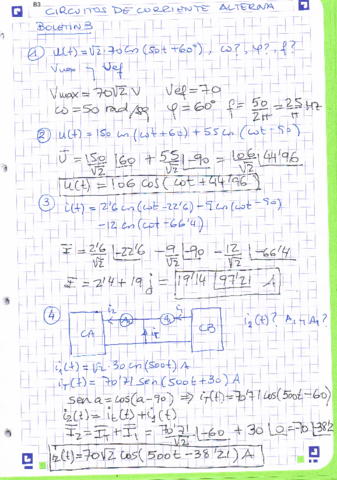 B3 CIRCUITOS DE CORRIENTE ALTERNA
BOLETIN 3
① u(t)=√2·70 cos(50t+60°), ω?, φ?, f?
Vmax y Vef
Vmax = 70√2 V Vef=70
ω=50 rad/sg φ=60° f=50/2π=25/π Hz
② u(t)=150 cos(ωt+60)+55 cos(ωt-90)
U=150/√2 |60 + 55/√2 |-90 = 106/√2 |44'96
u(t)=106 cos(ωt+44'96)
③ i(t)=2'6 cos(ωt-22'6)-9 cos(ωt-90)
-12 cos(ωt-66'4)
I=2'6/√2 |-22'6 -9/√2 |-90 -12/√2 |-66'4
I=2'4+19j= 19'14 |97'21 A
④ i2 i1 i2(t)? A1 y A2?
CA A2 A1 CB
iT
i1(t)=√2·30 cos(500t) A
iT(t)=70'71 sen(500t+30) A
sen a=cos(a-90) ⇒ iT(t)=70'71 cos(500t-60)
i2(t)=iT(t)+i1(t)
I2=IT+I1=70'71/√2 |-60 + 30 |0=70 |-38'2
i2(t)=70√2 cos(500t-38'21) A